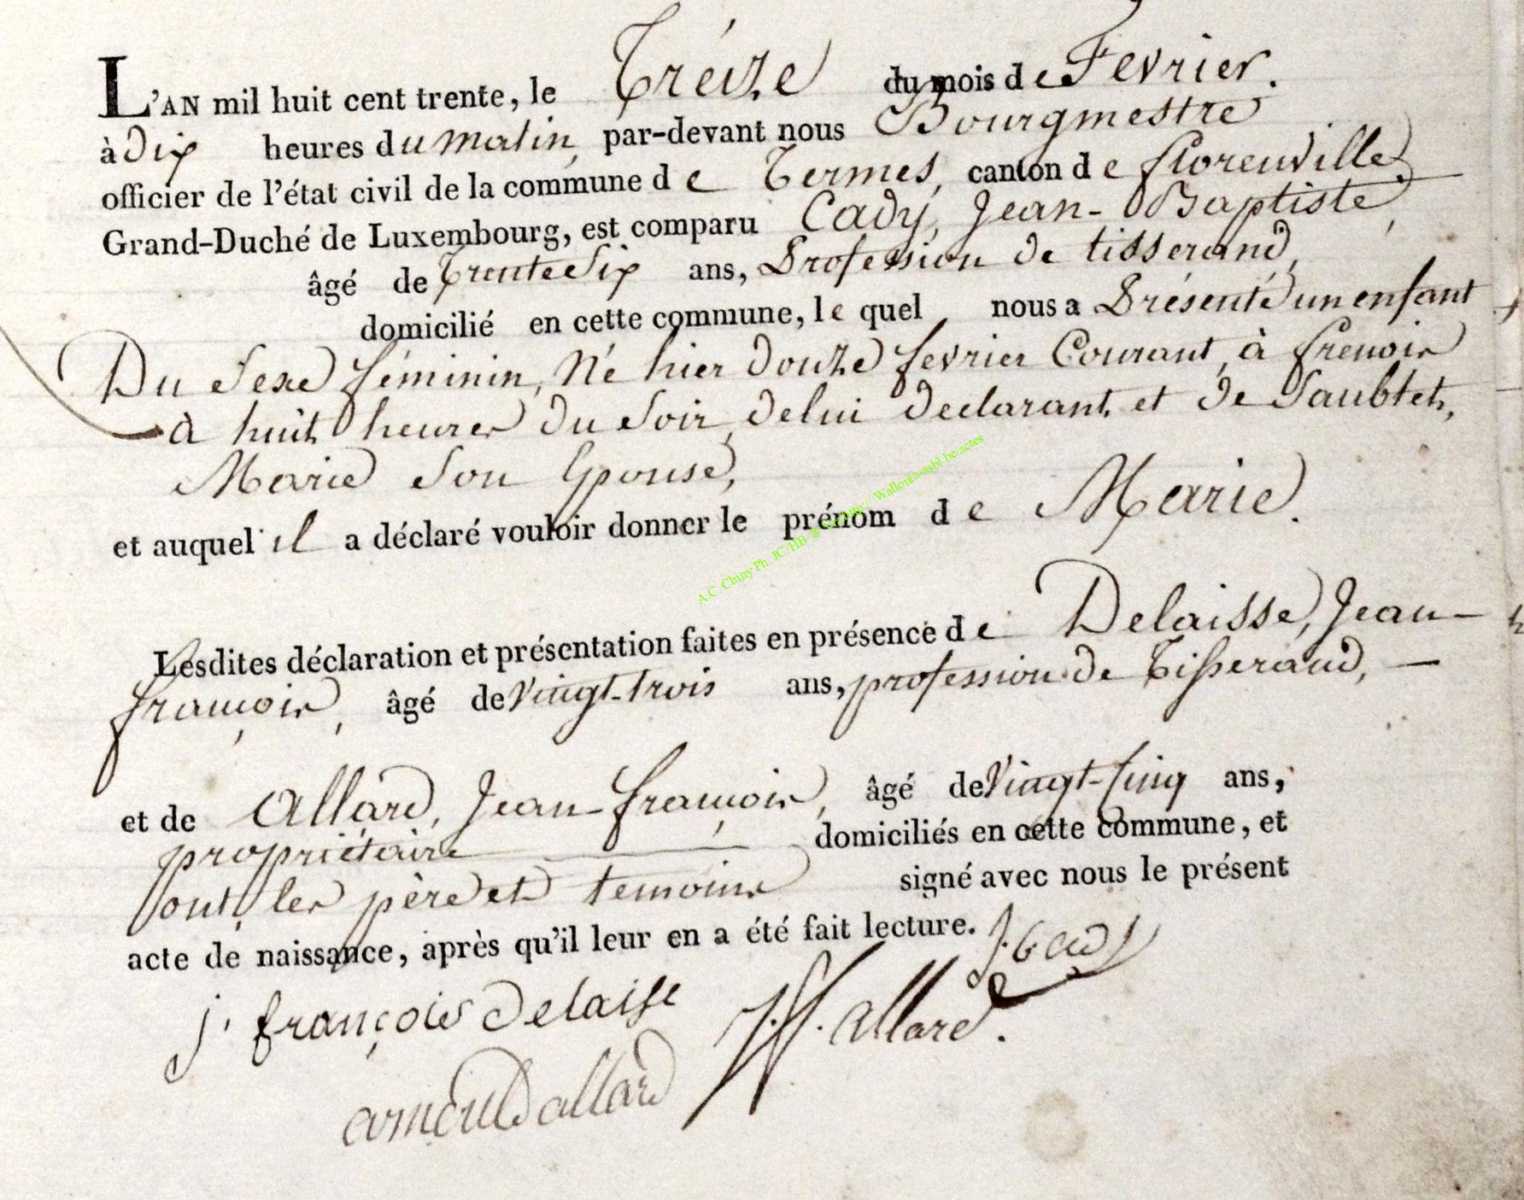 L'AN mil huit cent trente, le Tréize du mois de Fevrier.
à dix heures du matin, par-devant nous Bourgmestre
officier de l'état civil de la commune de Termes, canton de florenville,
Grand-Duché de Luxembourg, est comparu Cady, Jean-Baptiste,
âgé de Trente Six ans, Profession de tisserand,
domicilié en cette commune, le quel nous a Présenté un enfant
Du Sexe féminin, Né hier douze fevrier Courant, à frenois
à huit heures du Soir, de lui declarant, et de Saublet,
Marie Son Epouse,
et auquel il a déclaré vouloir donner le prénom de Marie.
A.C. Chiny Ph. JC/HB
Lesdites déclaration et présentation faites en présence de Delaisse, Jean-
françois, âgé de Vingt-trois ans, profession de Tisserand,
et de Allard, Jean-françois, âgé de Vingt-Cinq ans,
propriétaire domiciliés en cette commune, et
ont, les père et temoins signé avec nous le présent
acte de naissance, après qu'il leur en a été fait lecture. J. b Cady
j. françois Delaisse J. f. allard.
arnould allard